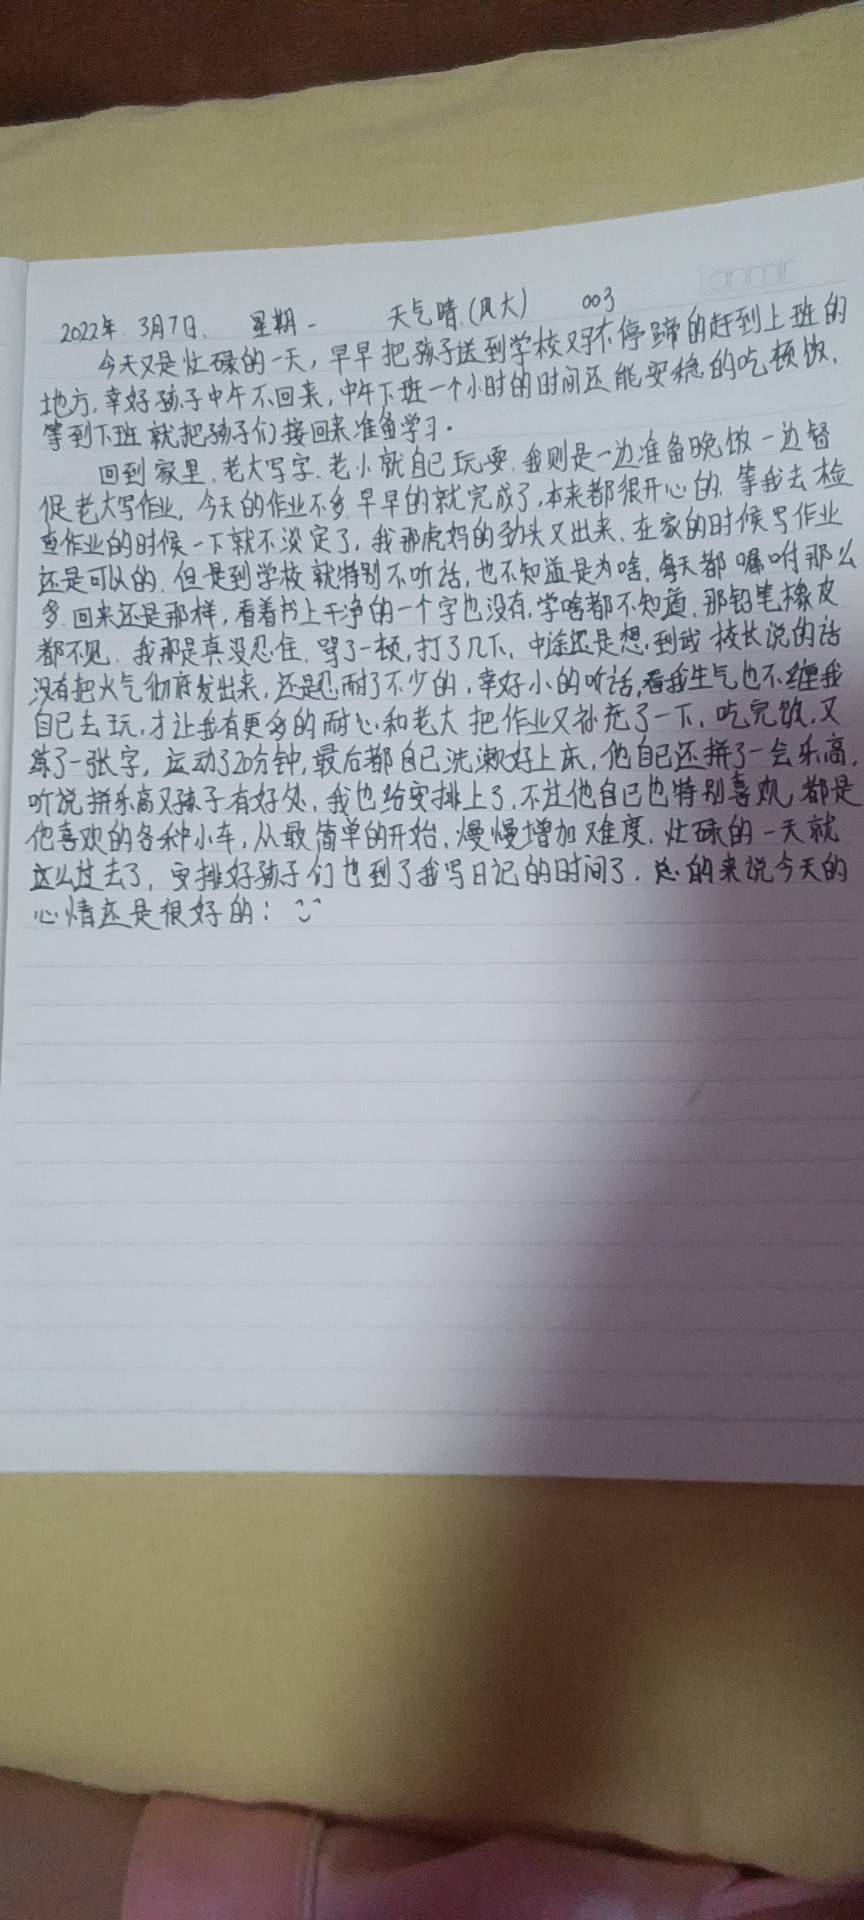 2022年.3月7日. 星期一 天气晴.(风大) 003
今天又是忙碌的一天,早早把孩子送到学校又马不停蹄的赶到上班的
地方.幸好孩子中午不回来,中午下班一个小时的时间还能安稳的吃顿饭.
等到下班就把孩子们接回来准备学习.
回到家里.老大写字.老小就自己玩耍.我则是一边准备晚饭一边督
促老大写作业,今天的作业不多.早早的就完成了,本来都很开心的.等我去检
查作业的时候一下就不淡定了,我那虎妈的劲头又出来.在家的时候写作业
还是可以的.但是到学校就特别不听话,也不知道是为啥.每天都嘱咐那么
多.回来还是那样,看着书上干净的一个字也没有.学啥都不知道.那铅笔橡皮
都不见.我那是真没忍住.骂了一顿,打了几下.中途还是想到武校长说的话
没有把火气彻底发出来,还是忍耐了不少的,幸好小的听话,看我生气也不缠我
自己去玩,才让我有更多的耐心.和老大把作业又补充了一下.吃完饭.又
练了一张字,运动了20分钟,最后都自己洗漱好上床,他自己还拼了一会乐高,
听说拼乐高对孩子有好处,我也给安排上了.不过他自己也特别喜欢,都是
他喜欢的各种小车,从最简单的开始.慢慢增加难度.忙碌的一天就
这么过去了,安排好孩子们也到了我写日记的时间了.总的来说今天的
心情还是很好的: